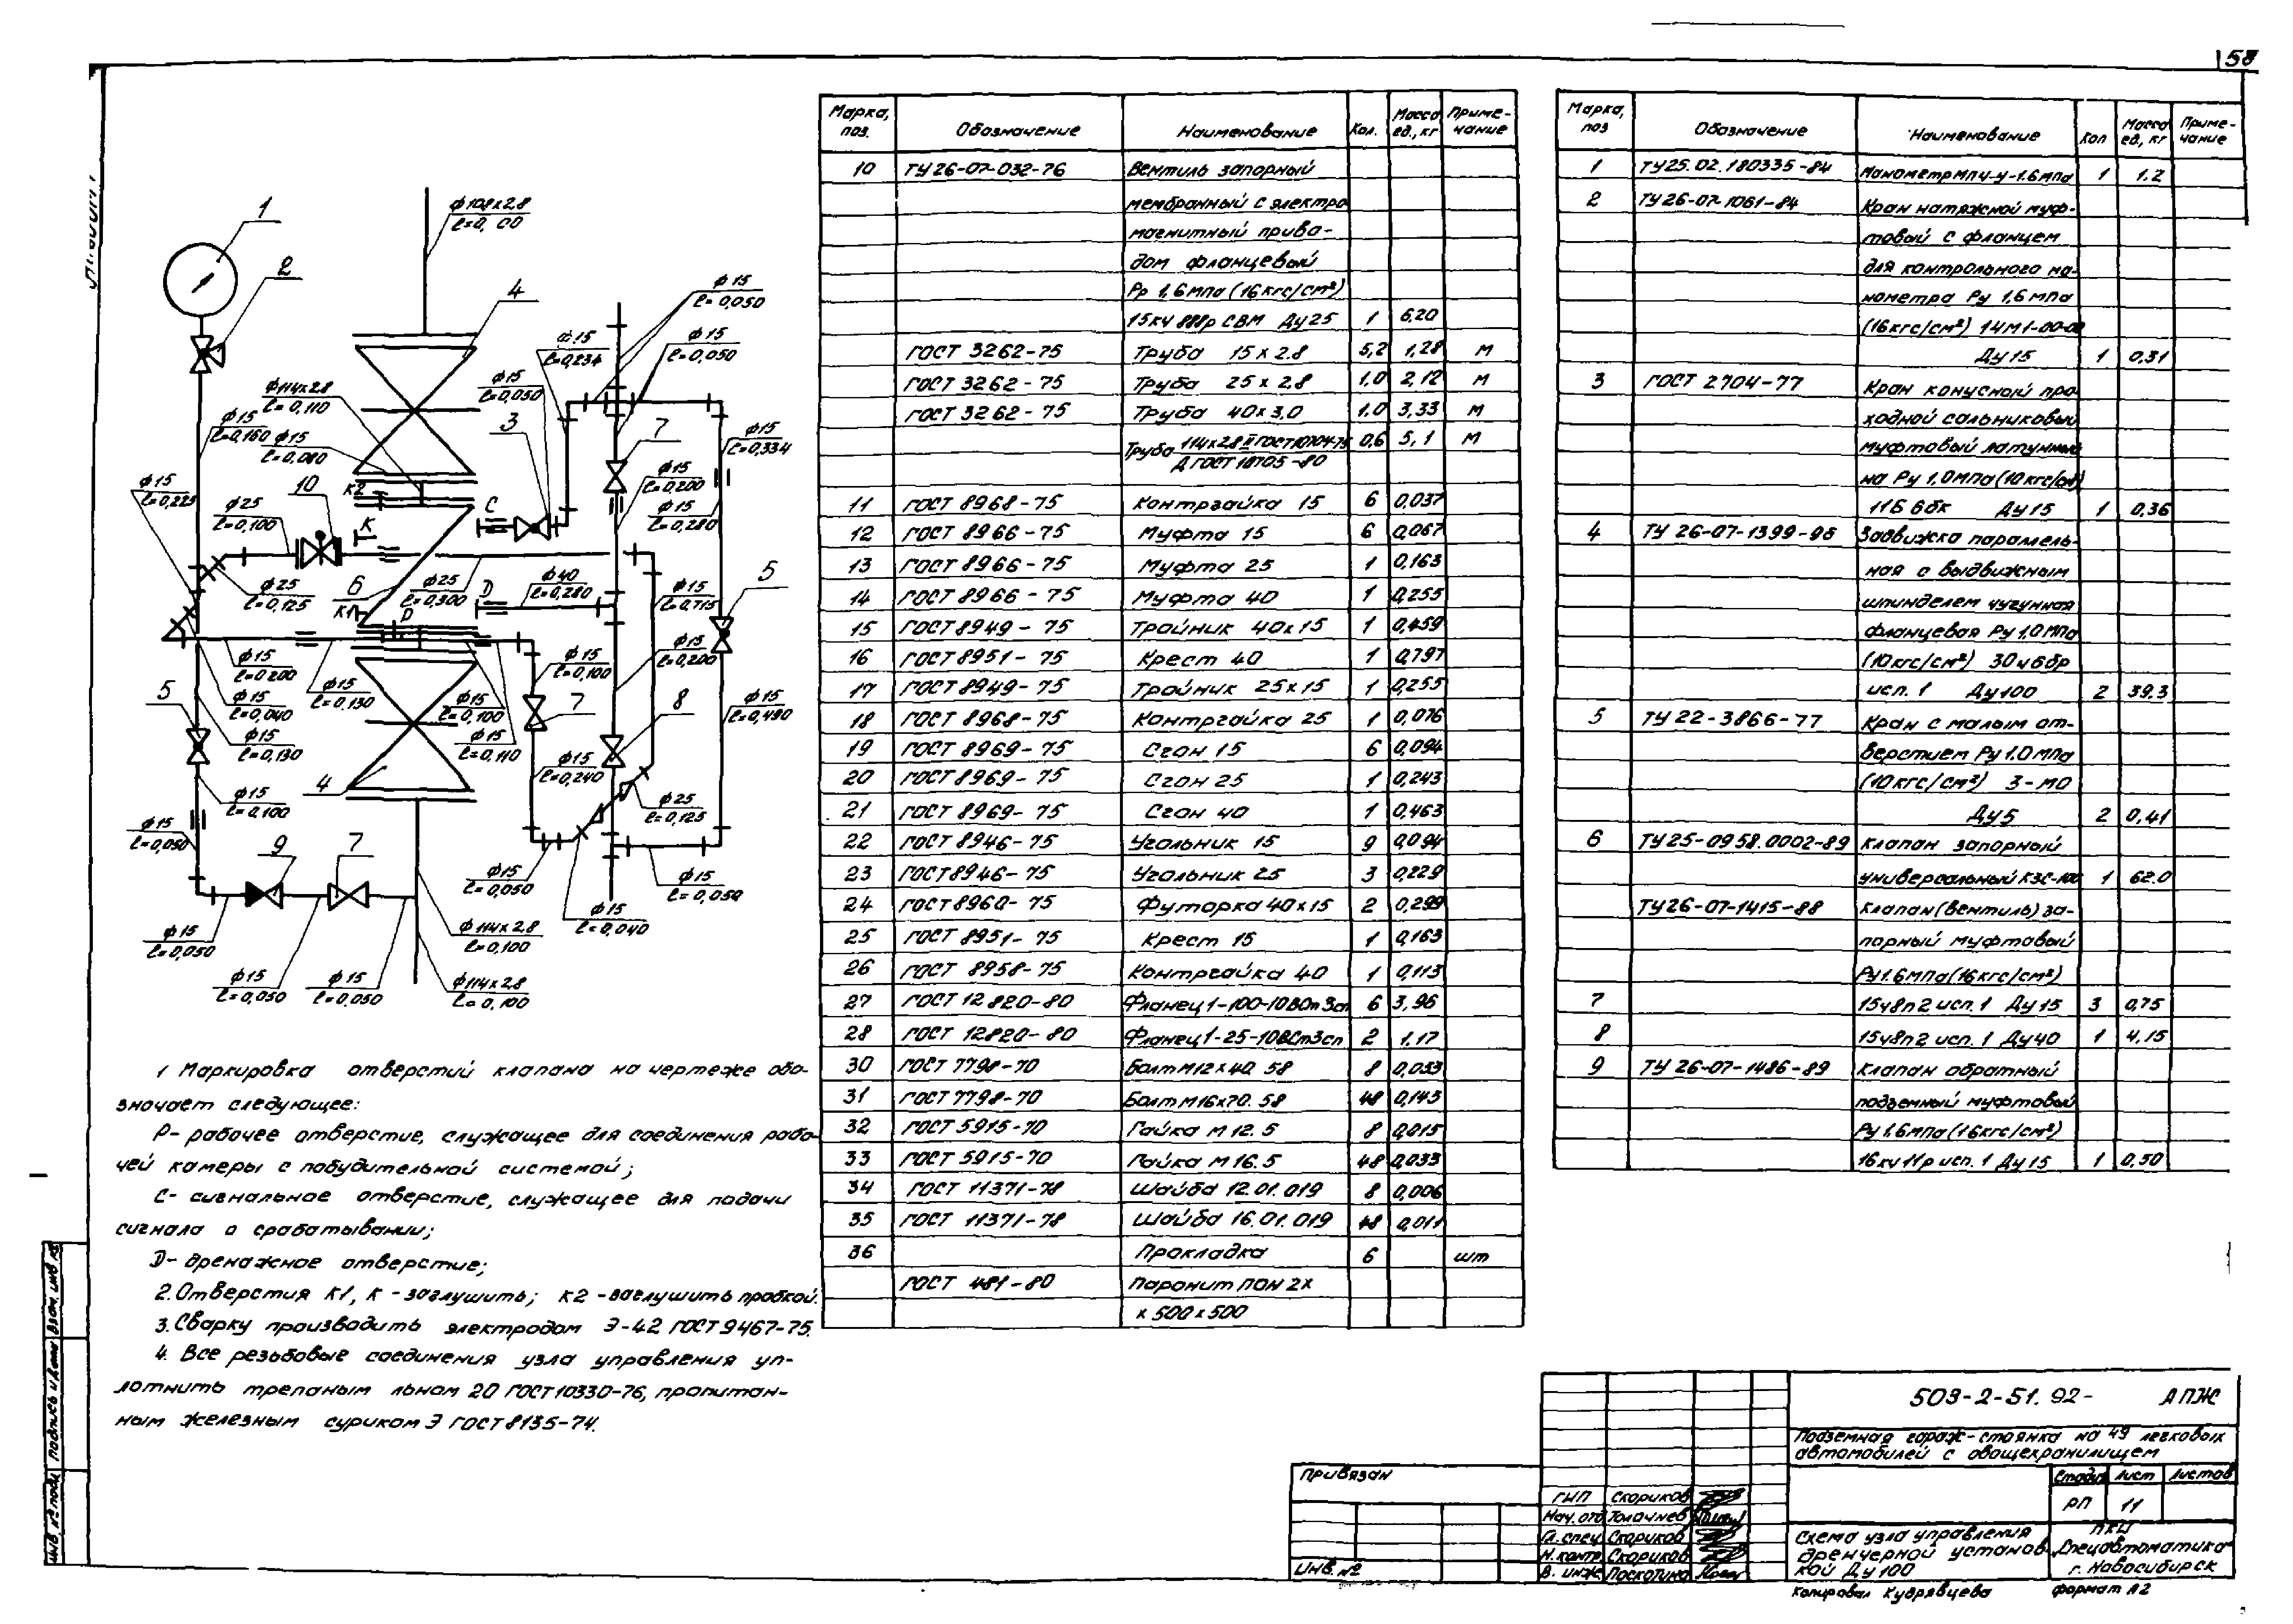 58
1
2
Ф108х2.8
4
Ф15
ℓ=0,050
Ф15
ℓ=0,234
Ф15
ℓ=0,050
Ф15
ℓ=0,050
Ф114х2.8
ℓ=0,110
3
7
Ф15
ℓ=0,160
Ф15
ℓ=0,080
Ф15
ℓ=0,334
Ф15
ℓ=0,225
10
К2
С
Ф15
ℓ=0,200
Ф25
ℓ=0,100
К
Ф15
ℓ=0,280
Ф25
ℓ=0,125
6
К1
Ф25
ℓ=0,300
D
Ф40
ℓ=0,280
Ф15
ℓ=0,715
5
Р
Ф15
ℓ=0,200
Ф15
ℓ=0,130
Ф15
ℓ=0,100
Ф15
ℓ=0,200
5
Ф15
ℓ=0,040
Ф15
ℓ=0,100
7
8
Ф15
ℓ=0,490
Ф15
ℓ=0,130
Ф15
ℓ=0,110
Ф15
ℓ=0,240
4
Ф15
ℓ=0,100
Ф25
ℓ=0,125
Ф15
ℓ=0,050
9
7
Ф15
ℓ=0,050
Ф15
ℓ=0,050
Ф15
ℓ=0,040
Ф15
ℓ=0,050
Ф114х2.8
ℓ=0,100
Ф15
ℓ=0,050
Ф15
ℓ=0,050
Ф114х2.8
ℓ=0,100
1 Маркировка отверстий клапана на чертеже обо-
значает следующее:
Р- рабочее отверстие, служащее для соединения рабо-
чей камеры с побудительной системой;
С- сигнальное отверстие, служащее для подачи
сигнала о срабатывании;
D- дренажное отверстие;
2. Отверстия К1, К - заглушить; К2 - заглушить пробкой.
3. Сварку производить электродом Э-42 ГОСТ 9467-75.
4. Все резьбовые соединения узла управления уп-
лотнить трепаным льном 20 ГОСТ 10330-76, пропитан-
ным железным суриком Э ГОСТ 8135-74.
Марка, поз. Обозначение Наименование Кол. Масса ед., кг Приме-чание
10 ТУ 26-07-032-76 Вентиль запорный
мембранный с электро
магнитный приво-
дом фланцевый
Рр 1,6 мпа (16 кгс/см²)
15кч 888р СВМ Ду 25 1 6.20
ГОСТ 3262-75 Труба 15 х 2.8 5,2 1,28 м
ГОСТ 3262-75 Труба 25 х 2,8 1,0 2,12 м
ГОСТ 3262-75 Труба 40х3,0 1.0 3,33 м
Труба 114х2.8 II ГОСТ 10704-75 0,6 5,1 м
Д ГОСТ 10705-80
11 ГОСТ 8968-75 Контргайка 15 6 0,037
12 ГОСТ 8966-75 Муфта 15 6 0,067
13 ГОСТ 8966-75 Муфта 25 1 0,163
14 ГОСТ 8966-75 Муфта 40 1 0,255
15 ГОСТ 8949-75 Тройник 40х15 1 0,459
16 ГОСТ 8951-75 Крест 40 1 0,797
17 ГОСТ 8949-75 Тройник 25х15 1 0,255
18 ГОСТ 8968-75 Контргайка 25 1 0,076
19 ГОСТ 8969-75 Сгон 15 6 0,094
20 ГОСТ 8969-75 Сгон 25 1 0,243
21 ГОСТ 8969-75 Сгон 40 1 0,463
22 ГОСТ 8946-75 Угольник 15 9 0,094
23 ГОСТ 8946-75 Угольник 25 3 0,229
24 ГОСТ 8960-75 Футорка 40х15 2 0,299
25 ГОСТ 8951-75 Крест 15 1 0,163
26 ГОСТ 8958-75 Контргайка 40 1 0,113
27 ГОСТ 12820-80 Фланец 1-100-10ВСт3сп 6 3,96
28 ГОСТ 12820-80 Фланец 1-25-10ВСт3сп 2 1,17
30 ГОСТ 7798-70 Болт М12х40. 58 8 0,053
31 ГОСТ 7798-70 Болт М16х70. 58 48 0,145
32 ГОСТ 5915-70 Гайка М 12. 5 8 0,015
33 ГОСТ 5915-70 Гайка М 16. 5 48 0,033
34 ГОСТ 11371-78 Шайба 12.01.019 8 0,006
35 ГОСТ 11371-78 Шайба 16.01.019 48 0,011
36 Прокладка 6 шт
ГОСТ 481-80 Паронит ПОН 2х
х 500х500
Марка, поз Обозначение Наименование Кол Масса ед., кг Приме-чание
1 ТУ25.02.180335-84 Манометр МПЧ-У-1.6мпа 1 1.2
2 ТУ 26-07-1061-84 Кран натяжной муф-
товый с фланцем
для контрольного ма-
нометра Ру 1,6 мпа
(16кгс/см²) 14М1-00-00
Ду 15 1 0,31
3 ГОСТ 2704-77 Кран конусной про-
ходной сальниковый
муфтовый латунный
на Ру 1,0мпа (10 кгс/см²)
11Б 6бк Ду 15 1 0,36
4 ТУ 26-07-1399-86 Задвижка параллель-
ная с выдвижным
шпинделем чугунная
фланцевая Ру 1,0 мпа
(10кгс/см²) 30ч6бр
исп. 1 Ду100 2 39.3
5 ТУ 22-3866-77 Кран с малым от-
верстием Ру 1.0 мпа
(10 кгс/см²) 3-МО
Ду5 2 0,41
6 ТУ25-0958.0002-89 Клапан запорный
универсальный КЗС-100 1 62.0
ТУ26-07-1415-88 Клапан (вентиль) за-
порный муфтовый
Ру1.6мпа (16кгс/см²)
7 15ч8п2 исп. 1 Ду 15 3 0,75
8 15ч8п2 исп. 1 Ду40 1 4,15
9 ТУ 26-07-1486-89 Клапан обратный
подземный муфтовый
Ру 1.6мпа (16кгс/см²)
16кч 11р исп. 1 Ду 15 1 0,50
503-2-51. 92- АПЖ
Подземная гараж-стоянка на 49 легковых
автомобилей с овощехранилищем
Стадия Лист Листов
РП 11
Привязан
ИНВ. №
ГИП Скориков
Нач. отд Толачнев
Гл. спец Скориков
Н. контр Скориков
В. инж Поскотина
Схема узла управления
дренчерной установ
кой Ду 100
ПКИ
Спецавтоматика
г. Новосибирск
Копировал Кудрявцева Формат А2
Взам. инв. №
Подпись и дата
Инв. № подл